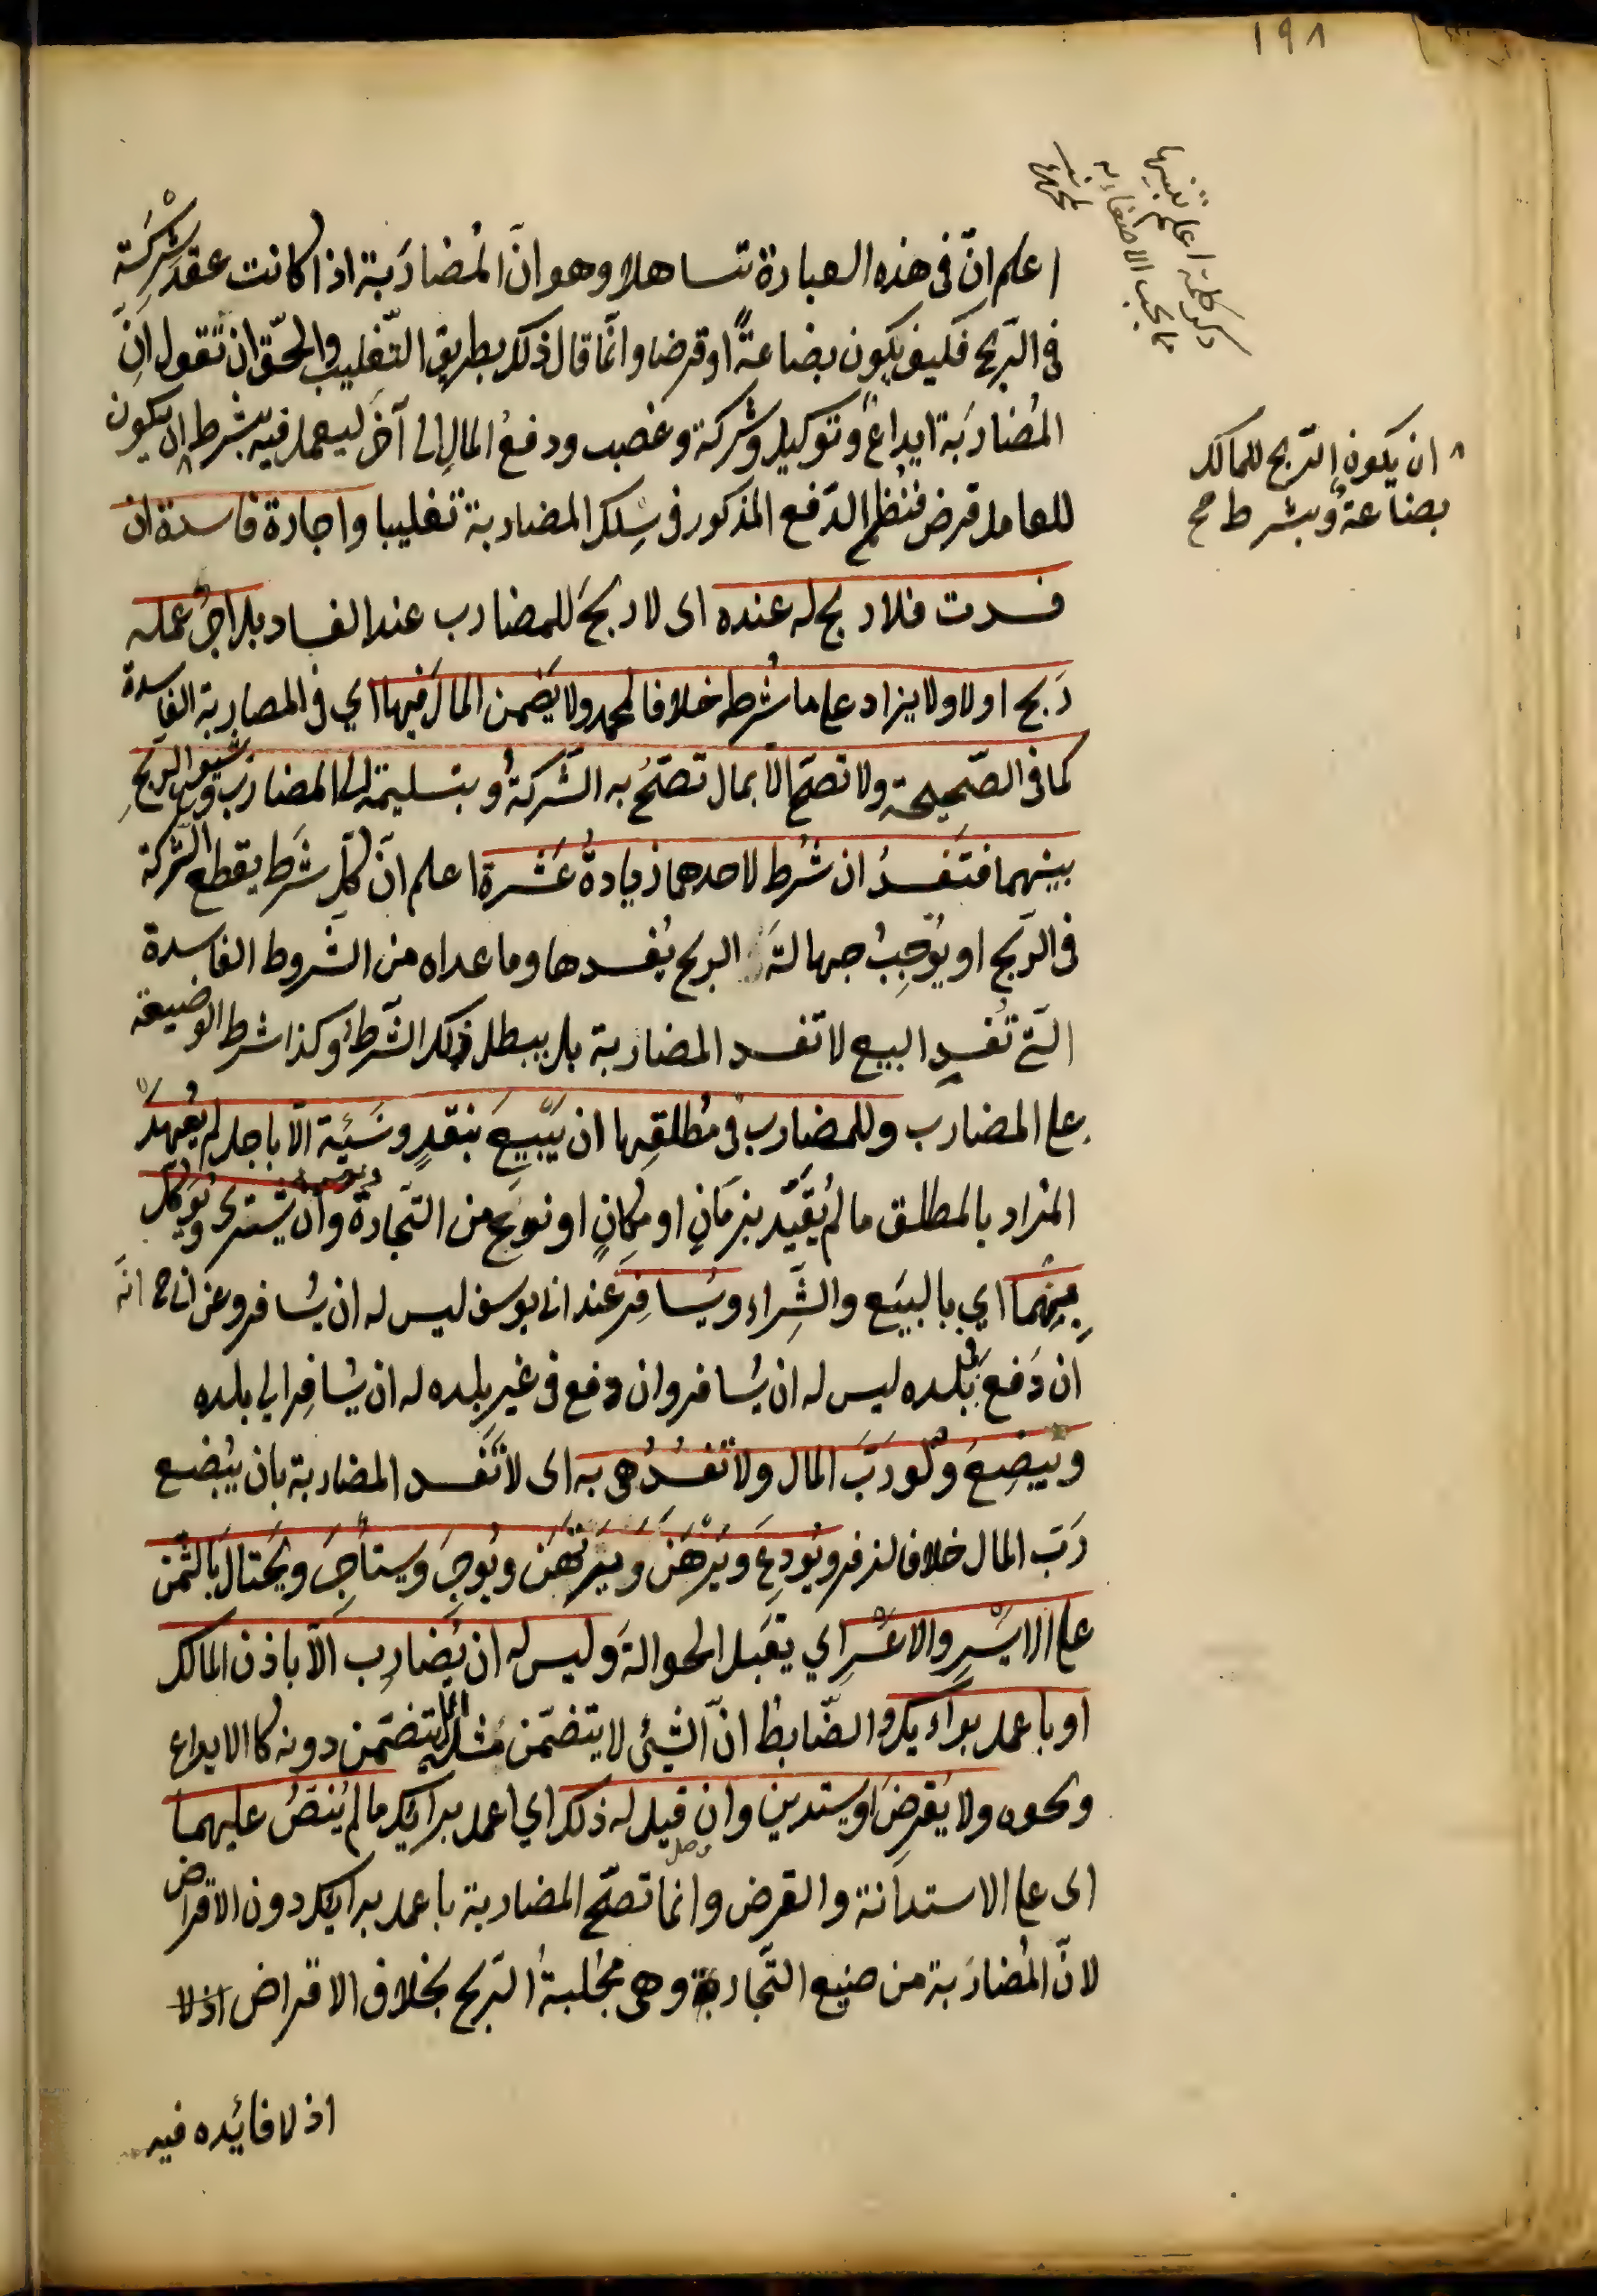 ١٩٨
ذكر كلمة اعلم تنبيها
ما يجب الاصغاء به
اعلم انّ فى هذه العبارة تساهلا وهو انّ المُضارَبة اذا كانت عقد شركة
فى الرّبح فكيف يكون بضاعةً او قرضا وانّما قال ذلك بطريق التّغليب والحقّ ان تقول انّ
المُضارَبة ايداعٌ وتوكيل وشركة وغصب ودفعُ المالِ الى آخر ليعمل فيه بشرط ان يكون
٨ ان يكون الرّبح للمالك
بضاعةٌ وبشرط صح
للعامل قرض فنُظم الدّفع المذكور فى سِلك المضاربة تغليبا واجارة فاسدة ان
فسدت فلا ربح له عنده اى لا ربحَ للمضارب عند الفساد بل اجرُ عمله
رَبح اولا ولا يزاد على ما شُرط خلافا لمحمد ولا يَضمن المالَ فيها اي فى المضاربة الفاسدة
كما فى الصّحيحة ولا تصحّ الاّ بمال تصحّ به الشّركةُ وبتسليمه الى المضارب وشيوع الربحِ
بينهما فتفسدُ ان شُرط لاحدهما زيادةُ عَشرة اعلم انّ كلّ شَرط يقطع الشّركة
فى الرّبح او يُوجِبُ جهالتَه الربح يُفسدها وما عداه من الشّروط الفاسدة
الّتى تُفسِد البيع لا تفسد المضاربة بل يبطل ذلك الشّرط وكذا شرط الوضيعة
على المضارَب وللمضارب فى مُطلقِها ان يَبيعَ بنقدٍ ونَسيئة الاّ باجل لم يُعهَد
المراد بالمطلق ما لم يُقيّد بزمَانٍ او مكانٍ او نوع من التّجارة وان يشترى ويُوكّل
بهما اي بالبيَع والشِّراء ويُسافِر عند ابى يوسف ليس له ان يُسافر وعن ابى ح انّه
ان دَفع فى بلده ليس له ان يُسافر وان دفع فى غير بلده له ان يُسافِر الى بلده
ويُبضِعَ ولو ربّ المال ولا تفسُدُ هى به اى لا تَفسد المضاربة بان يُبضع
رَبّ المال خلافا لزفر ويُودِعَ ويَرْهَنَ ويَرتهَن ويُوجِر ويستأجِر ويَحتالَ بالثّمن
على الايسَرِ والاعْسَرِ اي يقبَل الحوالةَ وليس له ان يُضارِب الاّ باذن المالك
او باعمل برأيك والضّابط انّ الشّئى لا يتضمّن مثله بل يتضمّن دونه كالايداع
ونحوه ولا يُقرِضَ او يستدين وان قيل له ذلك اي اعمل برايك ما لم يُنصّ عليهما
اى على الاستدانة والقرض وانما تصحّ المضاربة باعمل برايك دون الاقراض
لانّ المُضارَبة من صنيع التّجارة وهى مَجلبةُ الرّبح بخلاف الاقراض اذ لا
اذ لا فائده فيه